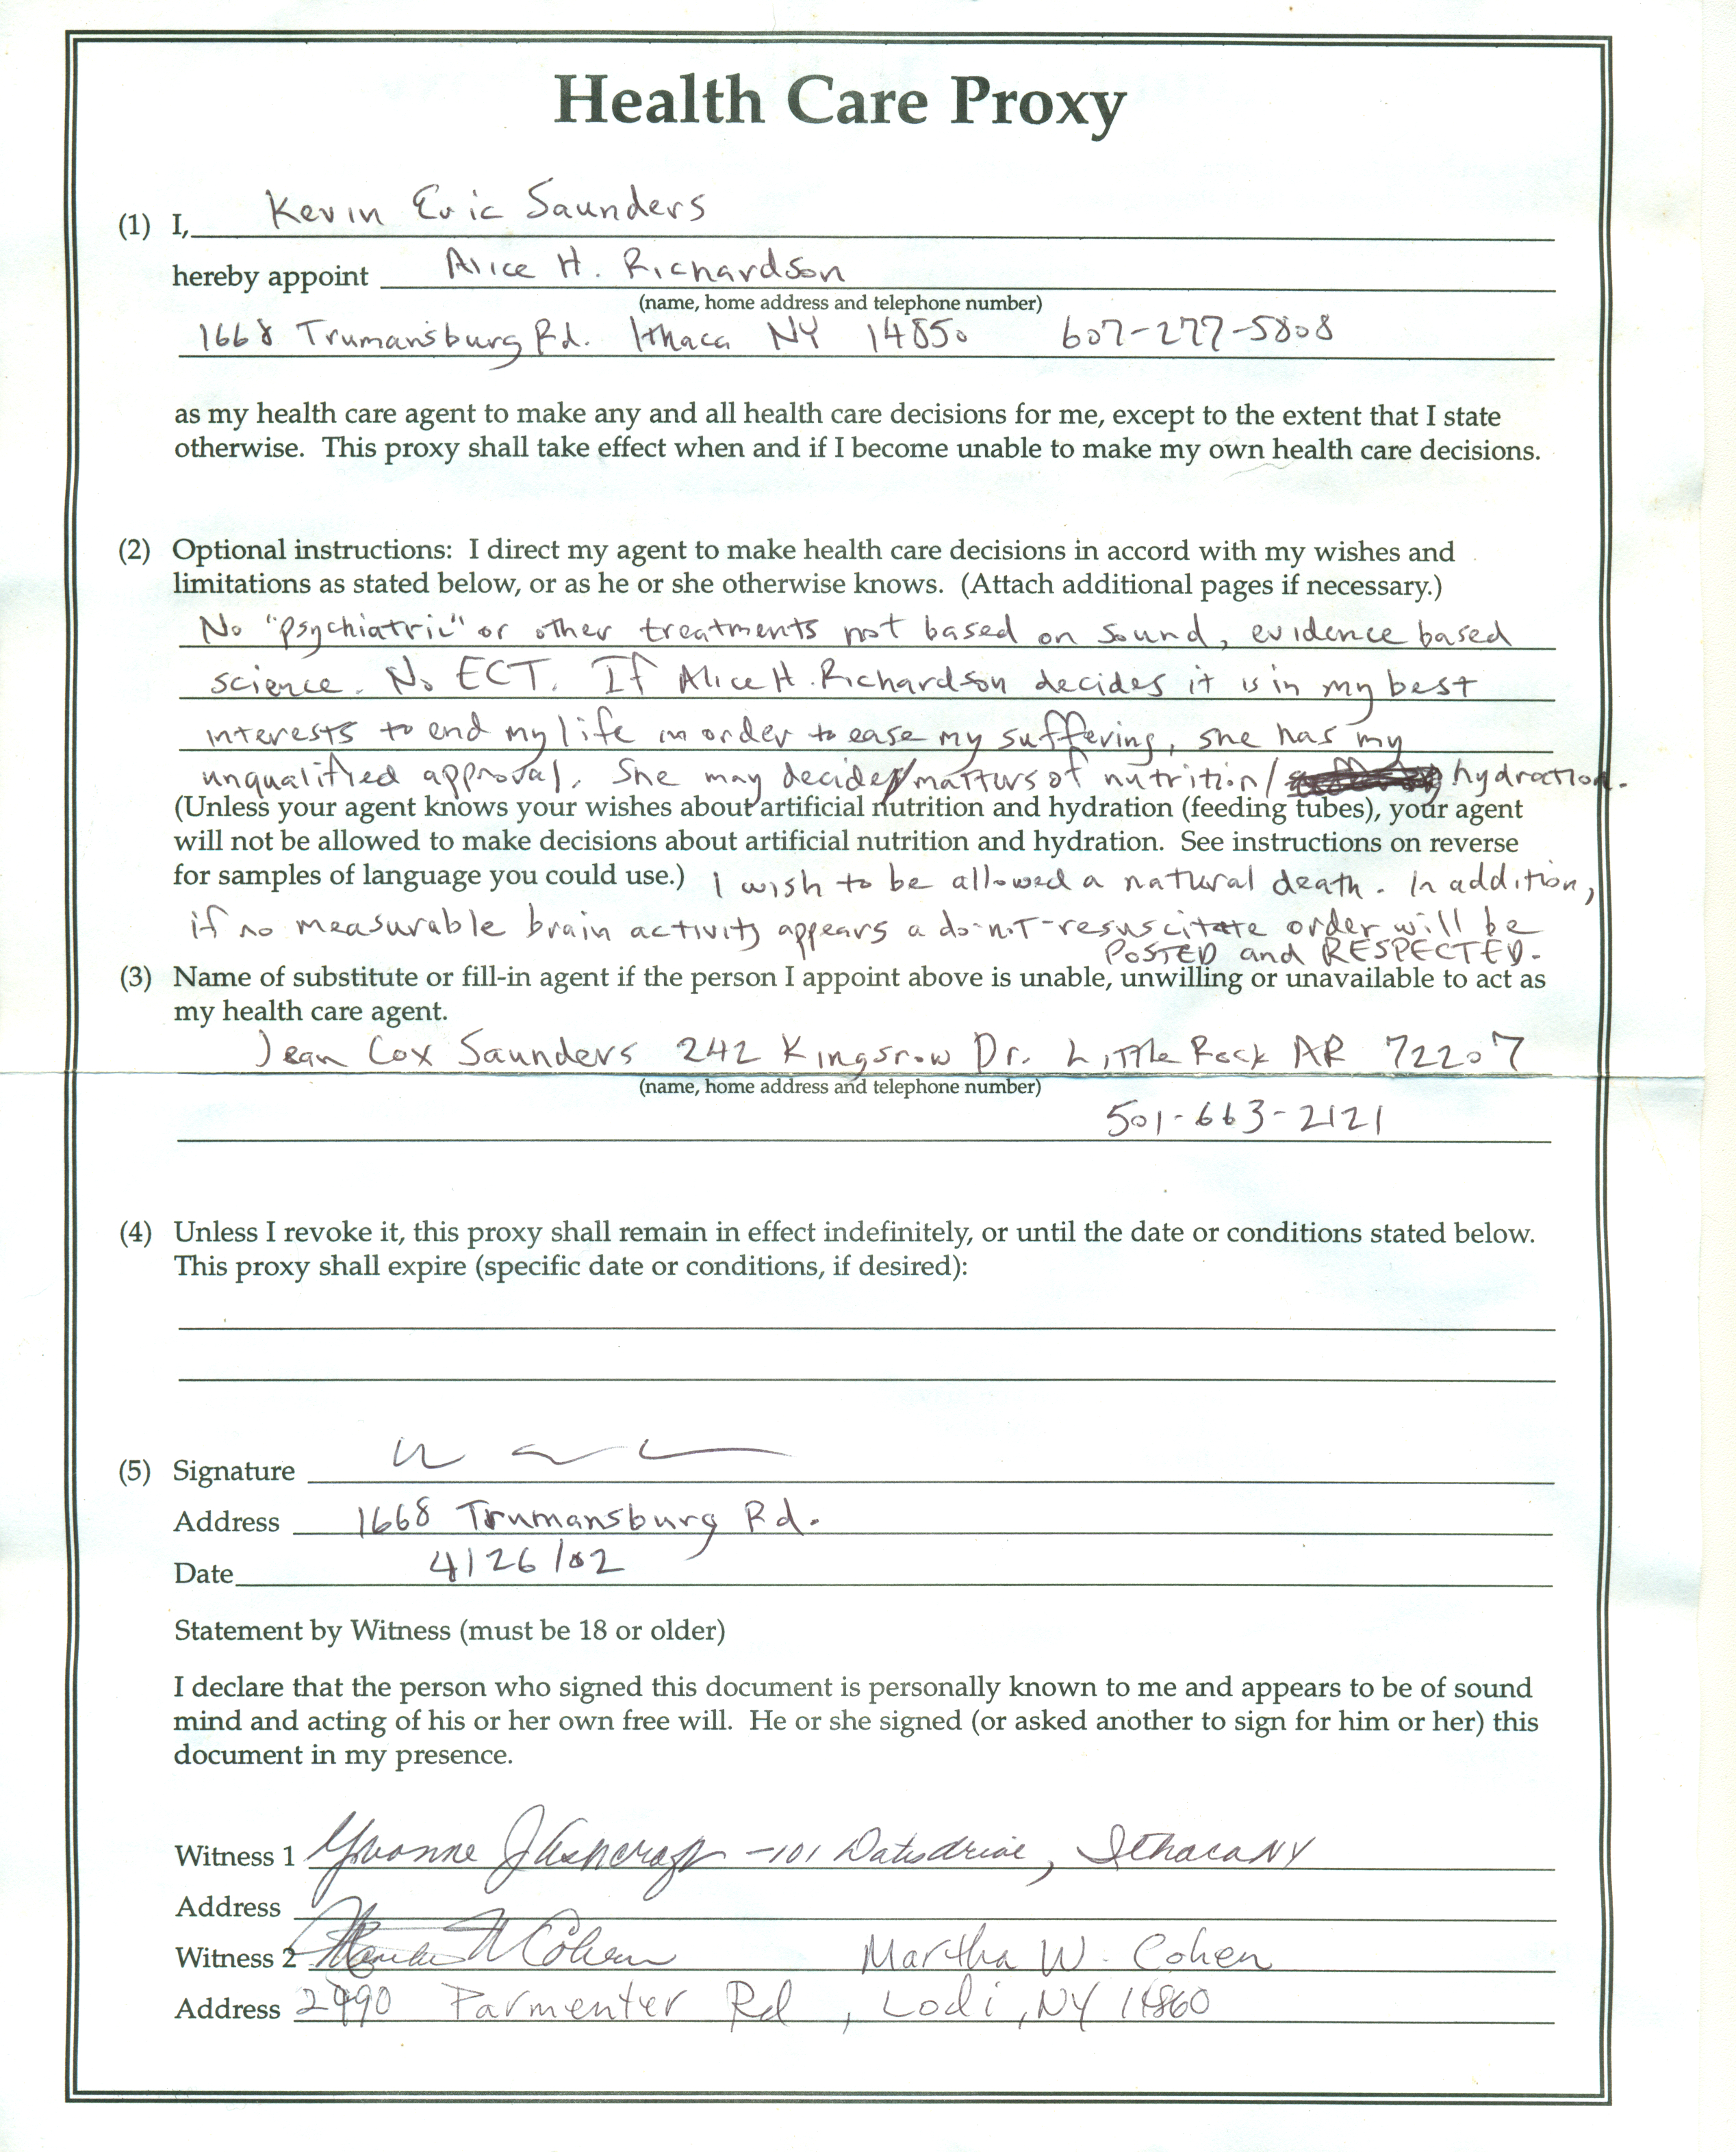 Health Care Proxy
(1) I, Kevin Eric Saunders
hereby appoint Alice H. Richardson
(name, home address and telephone number)
1668 Trumansburg Rd. Ithaca NY 14850 607-277-5808
as my health care agent to make any and all health care decisions for me, except to the extent that I state
otherwise. This proxy shall take effect when and if I become unable to make my own health care decisions.
(2) Optional instructions: I direct my agent to make health care decisions in accord with my wishes and
limitations as stated below, or as he or she otherwise knows. (Attach additional pages if necessary.)
No "psychiatric" or other treatments not based on sound, evidence based
science. No ECT. If Alice H. Richardson decides it is in my best
interests to end my life in order to ease my suffering, she has my
unqualified approval. She may decide matters of nutrition/ hydration.
(Unless your agent knows your wishes about artificial nutrition and hydration (feeding tubes), your agent
will not be allowed to make decisions about artificial nutrition and hydration. See instructions on reverse
for samples of language you could use.) I wish to be allowed a natural death. In addition,
if no measurable brain activity appears a do-not-resuscitate order will be
POSTED and RESPECTED.
(3) Name of substitute or fill-in agent if the person I appoint above is unable, unwilling or unavailable to act as
my health care agent.
Jean Cox Saunders 242 Kingsrow Dr. Little Rock AR 72207
(name, home address and telephone number)
501-663-2121
(4) Unless I revoke it, this proxy shall remain in effect indefinitely, or until the date or conditions stated below.
This proxy shall expire (specific date or conditions, if desired):
(5) Signature
Address 1668 Trumansburg Rd.
Date 4/26/02
Statement by Witness (must be 18 or older)
I declare that the person who signed this document is personally known to me and appears to be of sound
mind and acting of his or her own free will. He or she signed (or asked another to sign for him or her) this
document in my presence.
Witness 1 Yvonne J Ashcraft -101 Drive, Ithaca NY
Address
Witness 2 Martha W Cohen Martha W. Cohen
Address Parmenter Rd, Lodi, NY 14860